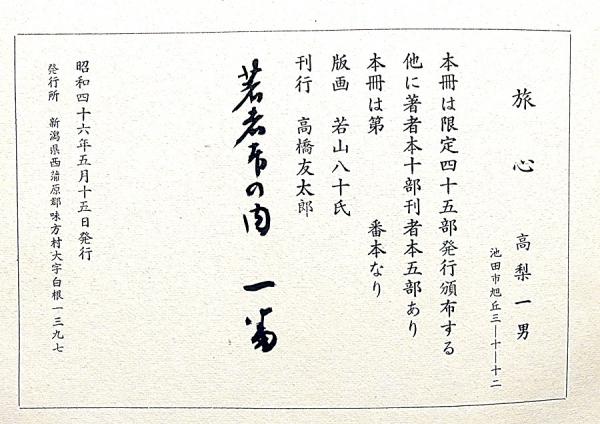 旅心　高梨一男
池田市旭丘三―十―十二
本冊は限定四十五部発行頒布する
他に著者本十部刊者本五部あり
本冊は第　　番本なり
版画　若山八十氏
刊行　高橋友太郎
著者本の内　一番
昭和四十六年五月十五日発行
発行所　新潟県西蒲原郡味方村大字白根一三九七